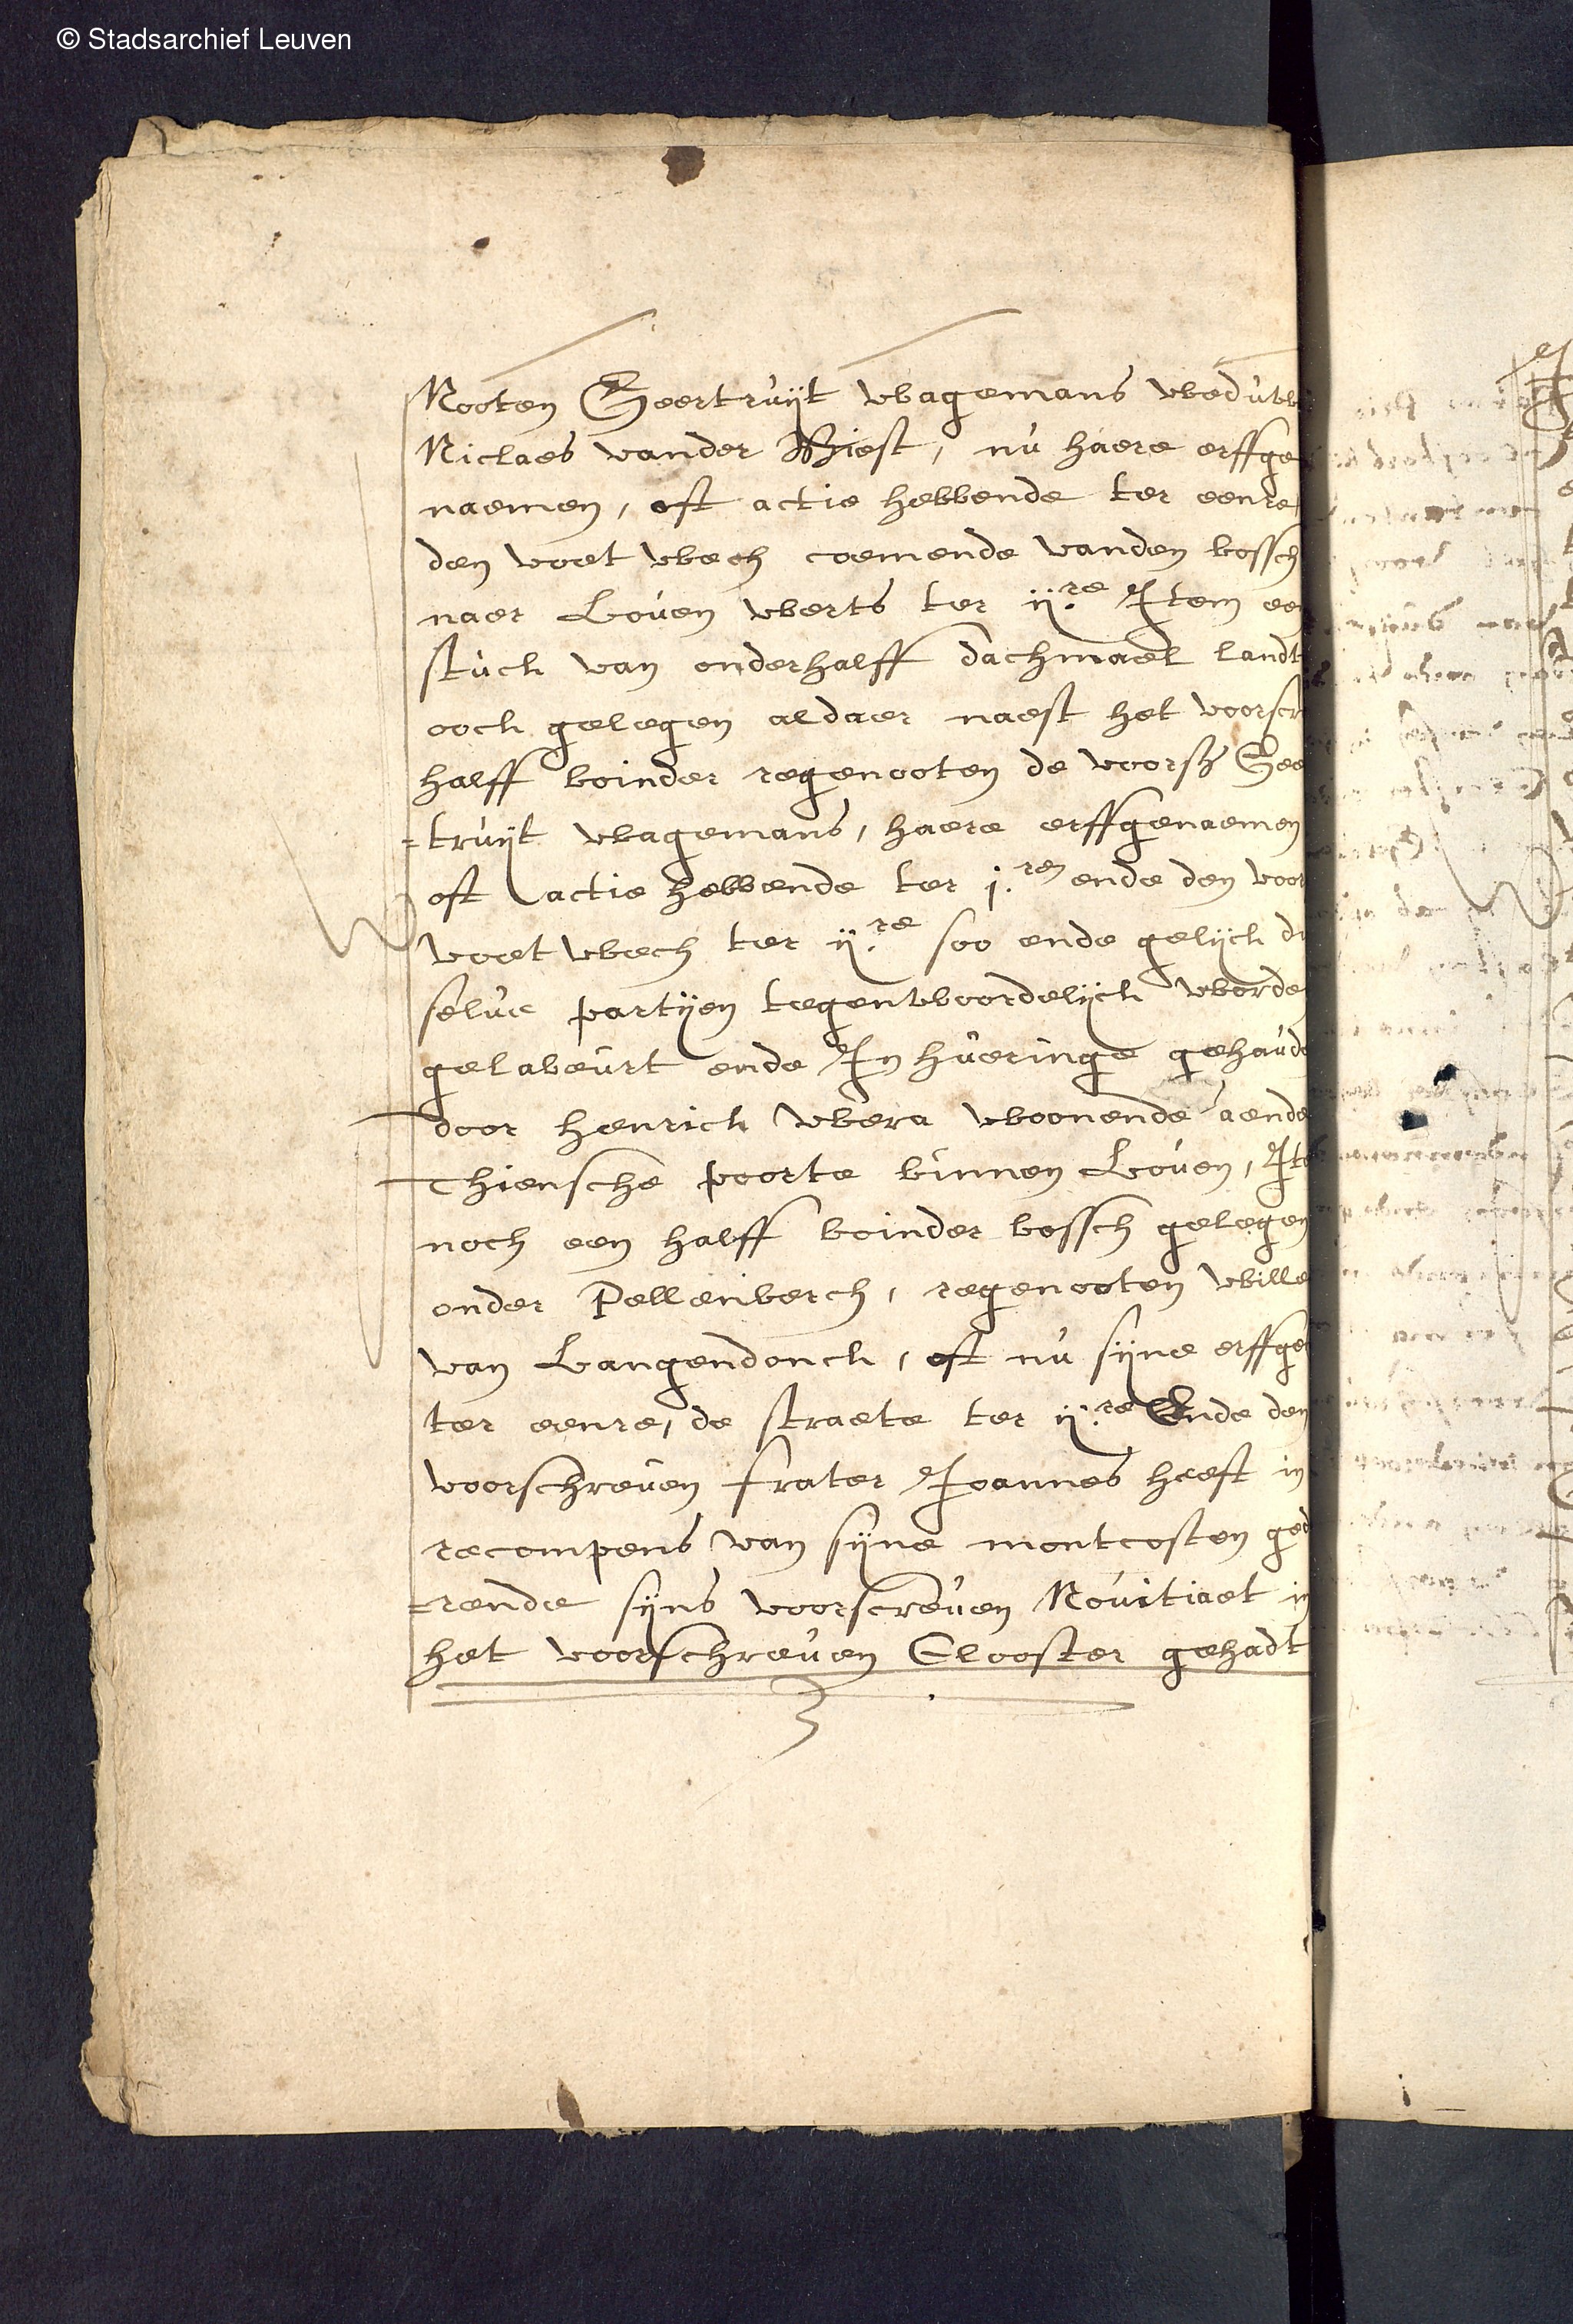 © Stadsarchief Leuven
Nooten Geertruijt Wagemans weduwe
Niclaes vander Biest, nu haere erffge
naemen, oft actie hebbende ter eenre
den voet wech coemende vanden bossch
naer Loven werts ter ij.re Item een
stuck van onderhalff dachmael landt
oock gelegen aldaer naest het voorscr
halff boinder regenooten de voors Gee
=truijt Wagemans, haere erffgenaemen
oft actie hebbende ter j.ren ende den voor
voet wech ter ij.re soo ende gelijck d
selve partijen tegenwoordelijck worde
gelabeurt ende In hueringe gehaud
door Henrick Wera woonende aende
Thiensche poorte binnen Loven, Ite
noch een halff boinder bossch gelegen
onder Pellenberch, regenooten Wille
van Langendonck, oft nu sijne erffge
ter eenre, de straete ter ij.re Ende den
voorschreven frater Joannes heeft in
recompens van sijne montcosten ged
=rende sijns voorscreven Novitiaet in
het voorschreven Clooster gehadt